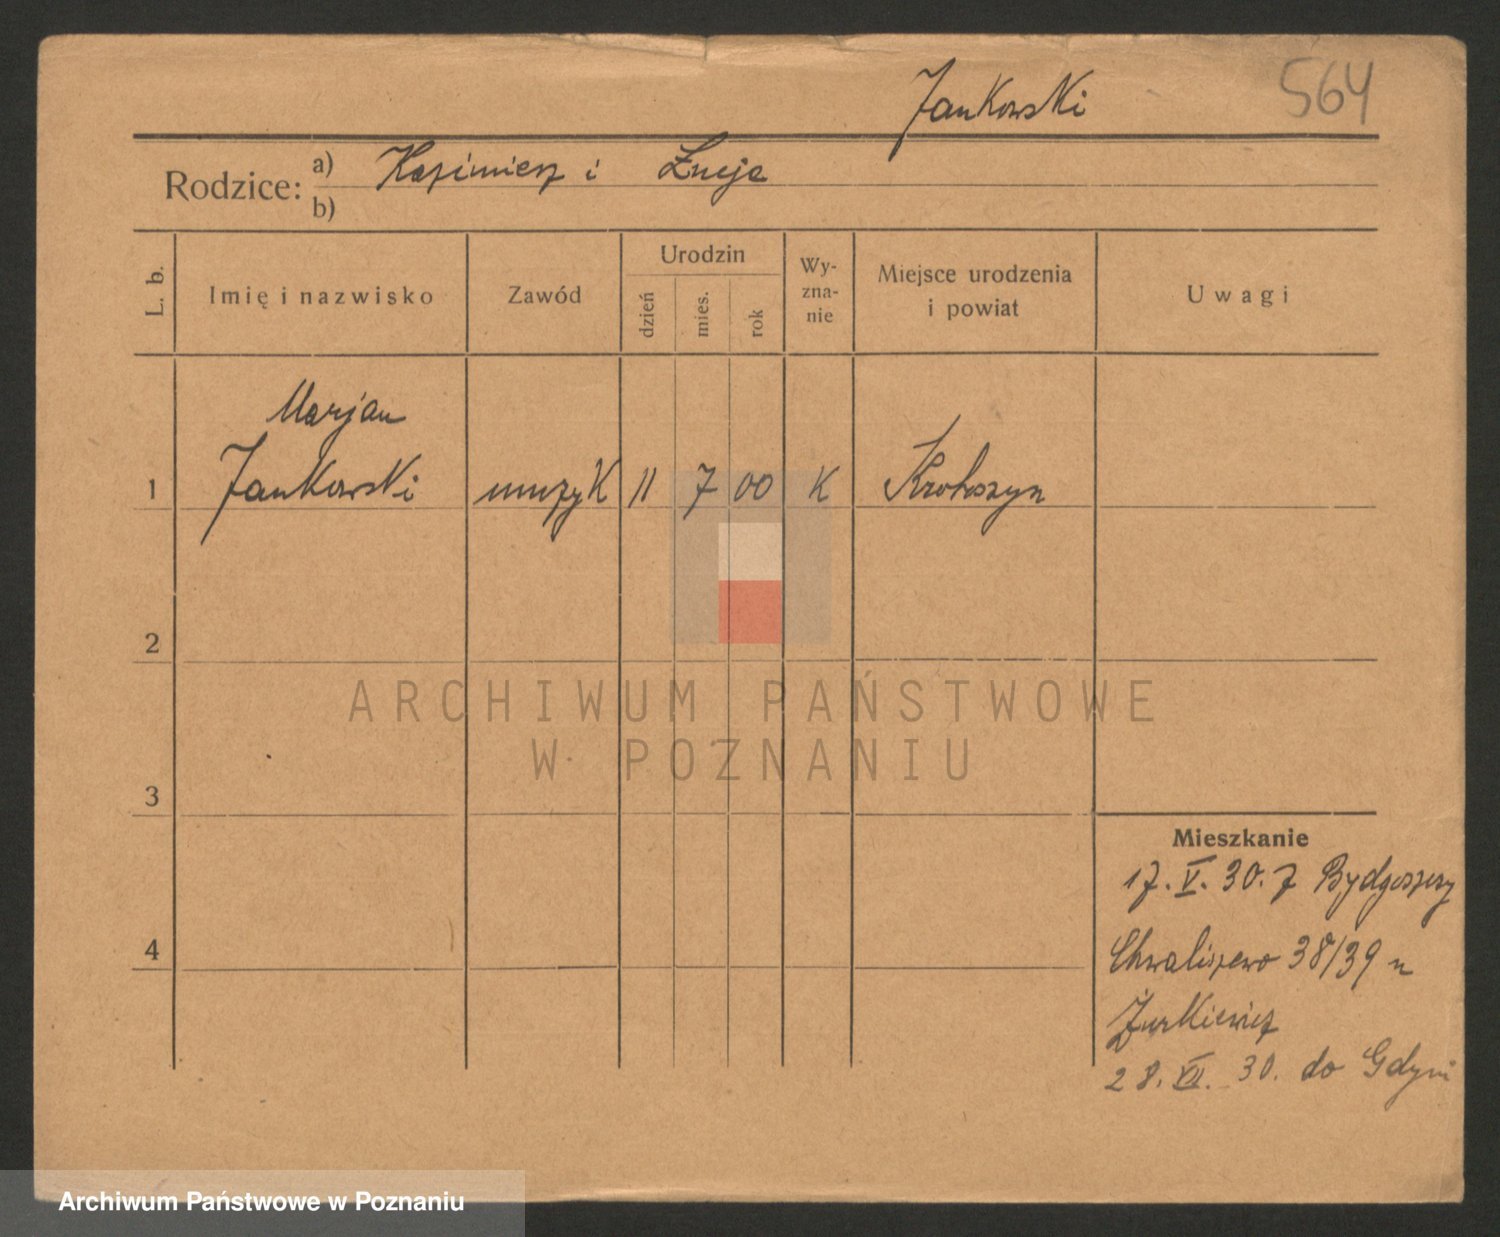 Jankowski 564
Rodzice: a) Kazimierz i Łucja
b)
L. b. Imię i nazwisko Zawód Urodzin dzień mies. rok Wy-zna-nie Miejsce urodzenia i powiat Uwagi
Marjan
1 Jankowski muzyk 11 7 00 K Krotoszyn
2
3
Mieszkanie
17. V. 30. z Bydgoszczy
4
Chwaliszewo 38/39 u
Żurkiewicz
28. VII. 30. do Gdyni
ARCHIWUM PAŃSTWOWE
W POZNANIU
Archiwum Państwowe w Poznaniu